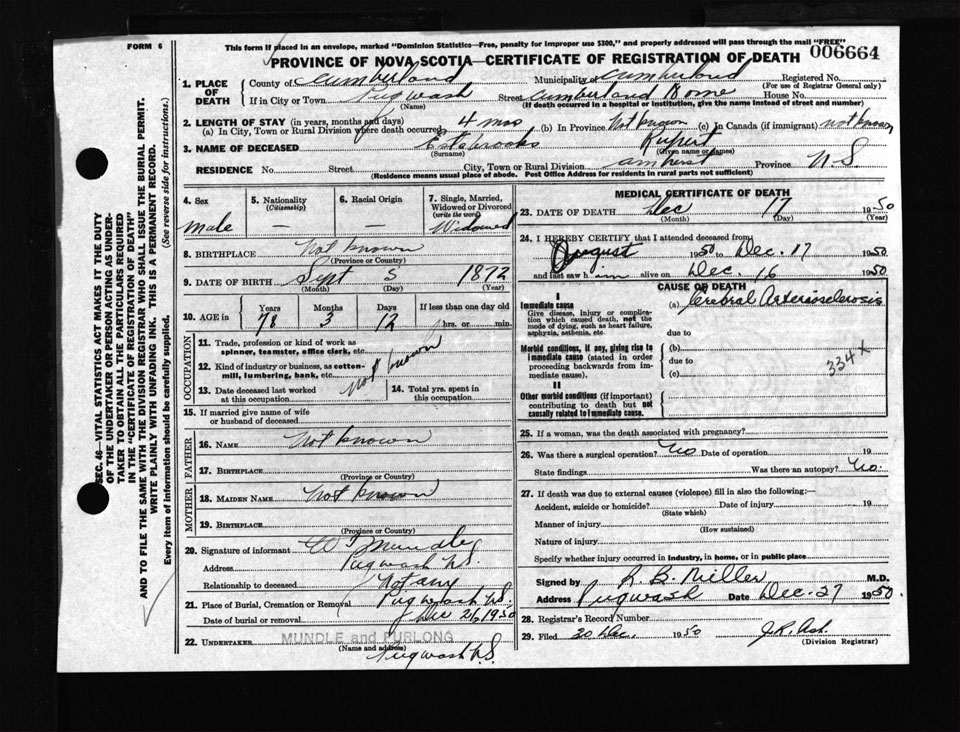 FORM 6
This form if placed in an envelope, marked "Dominion Statistics—Free, penalty for improper use $300," and properly addressed will pass through the mail "FREE"
006664
PROVINCE OF NOVA SCOTIA—CERTIFICATE OF REGISTRATION OF DEATH
SEC. 46—VITAL STATISTICS ACT MAKES IT THE DUTY
OF THE UNDERTAKER OR PERSON ACTING AS UNDER-
TAKER TO OBTAIN ALL THE PARTICULARS REQUIRED
IN THE "CERTIFICATE OF REGISTRATION OF DEATH"
AND TO FILE THE SAME WITH THE DIVISION REGISTRAR WHO SHALL ISSUE THE BURIAL PERMIT.
WRITE PLAINLY WITH UNFADING INK. THIS IS A PERMANENT RECORD.
Every item of information should be carefully supplied. (See reverse side for instructions.)
1. PLACE OF DEATH
County of Cumberland Municipality of Cumberland Registered No.
(For use of Registrar General only)
If in City or Town Pugwash Street Cumberland Home House No.
(Name) (If death occurred in a hospital or institution, give the name instead of street and number)
2. LENGTH OF STAY (in years, months and days)
(a) In City, Town or Rural Division where death occurred 4 mos (b) In Province Not known (c) In Canada (if immigrant) not known
3. NAME OF DECEASED Estabrooks Rupert
(Surname) (Given name or names)
RESIDENCE No. Street City, Town or Rural Division amherst Province N.S.
(Residence means usual place of abode. Post Office Address for residents in rural parts not sufficient)
4. Sex
male
5. Nationality
(Citizenship)
—
6. Racial Origin
—
7. Single, Married,
Widowed or Divorced
(write the word)
Widowed
8. BIRTHPLACE Not known
(Province or Country)
9. DATE OF BIRTH Sept 5 1872
(Month) (Day) (Year)
10. AGE in
Years Months Days If less than one day old
78 3 12 hrs. or min.
OCCUPATION
11. Trade, profession or kind of work as
spinner, teamster, office clerk, etc.
12. Kind of industry or business, as cotton-
mill, lumbering, bank, etc.
not known
13. Date deceased last worked
at this occupation
14. Total yrs. spent in
this occupation
15. If married give name of wife
or husband of deceased
FATHER
16. NAME Not known
17. BIRTHPLACE
(Province or Country)
MOTHER
18. MAIDEN NAME not known
19. BIRTHPLACE
(Province or Country)
20. Signature of informant W Mundle
Address Pugwash N.S.
Relationship to deceased Not any
21. Place of Burial, Cremation or Removal Pugwash N.S.
Date of burial or removal Dec 21, 1950
22. UNDERTAKER MUNDLE AND FURLONG
(Name and address)
Pugwash N.S.
MEDICAL CERTIFICATE OF DEATH
23. DATE OF DEATH Dec 17 1950
(Month) (Day) (Year)
24. I HEREBY CERTIFY that I attended deceased from
August 1950 to Dec. 17 1950
and last saw him alive on Dec. 16 1950
CAUSE OF DEATH
I
Immediate cause
Give disease, injury or complica-
tion which caused death, not the
mode of dying, such as heart failure,
asphyxia, asthenia, etc.
(a) Cerebral Arteriosclerosis
due to
Morbid conditions, if any, giving rise to
immediate cause (stated in order
proceeding backwards from im-
mediate cause).
(b)
due to
(c)
334 x
II
Other morbid conditions (if important)
contributing to death but not
causally related to immediate cause.
25. If a woman, was the death associated with pregnancy?
26. Was there a surgical operation? No Date of operation 19
State findings Was there an autopsy? No.
27. If death was due to external causes (violence) fill in also the following:—
Accident, suicide or homicide? Date of injury 19
(State which)
Manner of injury
(How sustained)
Nature of injury
Specify whether injury occurred in industry, in home, or in public place
Signed by R. B. Miller M.D.
Address Pugwash Date Dec. 27 1950.
28. Registrar's Record Number
29. Filed 30 Dec. 1950 J.R. Ash
(Division Registrar)